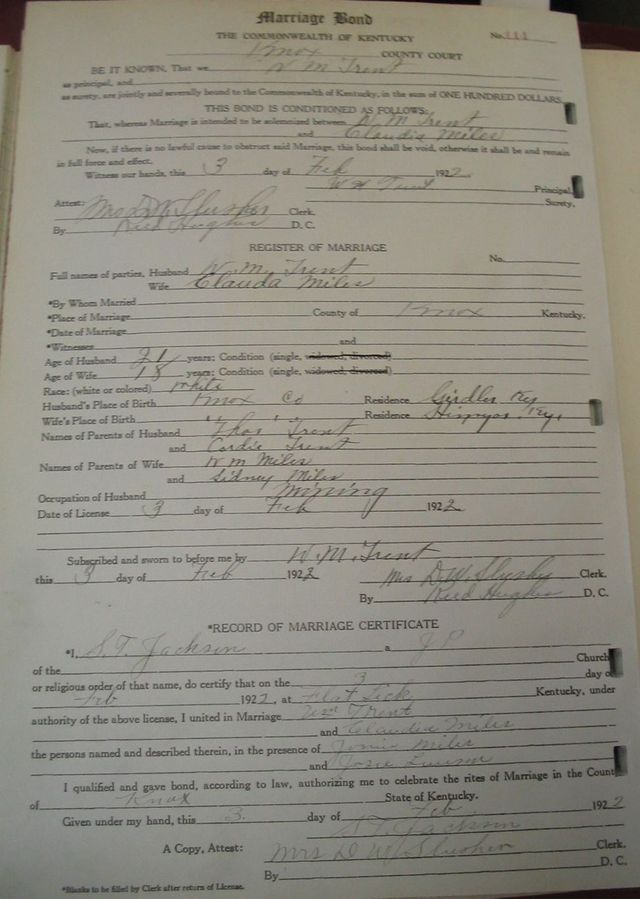 Marriage Bond
THE COMMONWEALTH OF KENTUCKY No. 111
Knox COUNTY COURT
BE IT KNOWN, That we W M Trent
as principal, and
as surety, are jointly and severally bound to the Commonwealth of Kentucky, in the sum of ONE HUNDRED DOLLARS.
THIS BOND IS CONDITIONED AS FOLLOWS:
That, whereas Marriage is intended to be solemnized between W. M. Trent
and Claudia Miles
Now, if there is no lawful cause to obstruct said Marriage, this bond shall be void, otherwise it shall be and remain
in full force and effect.
Witness our hands, this 3 day of Feb 1922.
W M Trent Principal
Surety.
Attest: Mrs D. W. Slusher Clerk.
By Reed Hughes D. C.
REGISTER OF MARRIAGE
No.
Full names of parties, Husband W. M. Trent
Wife Clauda Miles
*By Whom Married
*Place of Marriage County of Knox Kentucky.
*Date of Marriage
*Witnesses and
Age of Husband 21 years; Condition (single, widowed, divorced)
Age of Wife 18 years; Condition (single, widowed, divorced)
Race: (white or colored) white
Husband's Place of Birth Knox Co Residence Girdler Ky
Wife's Place of Birth " " Residence Himyar Ky.
Names of Parents of Husband Thos Trent
and Cordie Trent
Names of Parents of Wife Wm Miles
and Sidney Miles
Occupation of Husband Mining
Date of License 3 day of Feb 1922
Subscribed and sworn to before me by W. M. Trent
this 3 day of Feb 1922
Mrs D. W. Slusher Clerk.
By Reed Hughes D. C.
*RECORD OF MARRIAGE CERTIFICATE
*I, S. T. Jackson a J P
of the Church
or religious order of that name, do certify that on the 3 day of
Feb 1922, at Flat Lick Kentucky, under
authority of the above license, I united in Marriage Wm Trent
and Claudia Miles
the persons named and described therein, in the presence of Miles
and Josie
I qualified and gave bond, according to law, authorizing me to celebrate the rites of Marriage in the Count
of Knox State of Kentucky.
Given under my hand, this 3. day of Feb 1922
S. T. Jackson
A Copy, Attest: Mrs D W Slusher Clerk.
By D. C.
*Blanks to be filled by Clerk after return of License.